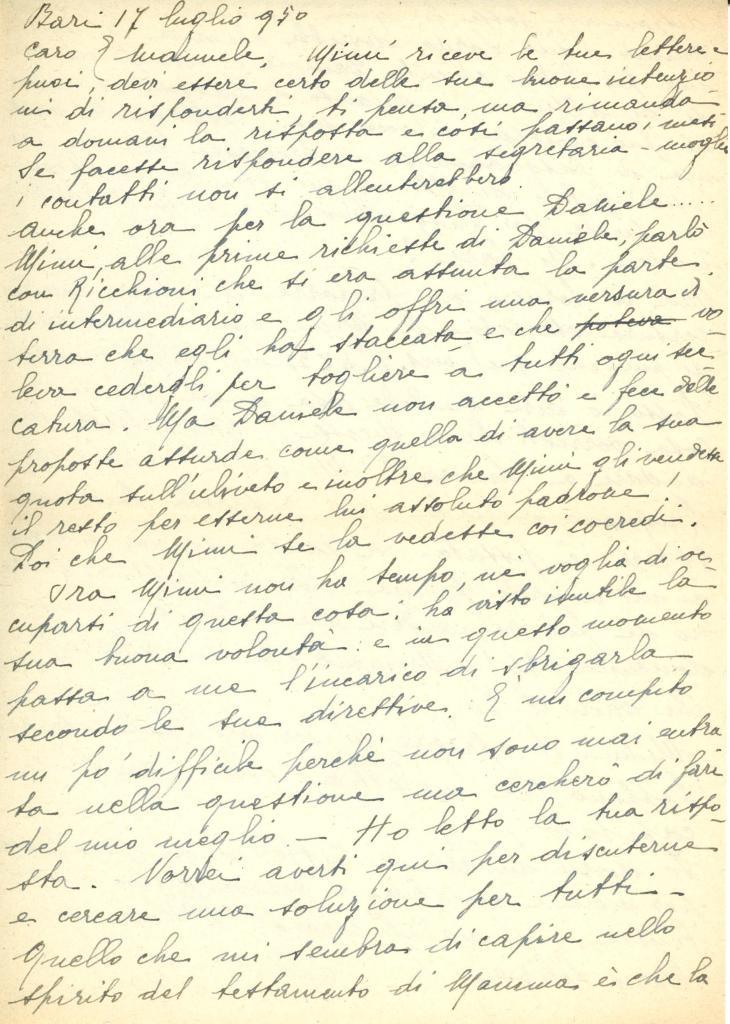 Bari 17 luglio 950
Caro Emanuele, Mimì riceve le tue lettere e
puoi, devi essere certo delle sue buone intenzio
ni di risponderti, ti pensa, ma rimanda
a domani la risposta e così passano i mesi.
Se facesse rispondere alla segretaria - moglie
i contatti non si allenterebbero.
Anche ora per la questione Daniele.....
Mimì, alle prime richieste di Daniele, parlò
con Ricchioni che si era assunta la parte
di intermediario e gli offrì una versura di
terra che egli ha staccata e che poteva vo
leva cedergli per togliere a tutti ogni sec
catura. Ma Daniele non accettò e fece delle
proposte assurde come quella di avere la sua
quota sull'uliveto e inoltre che Mimì gli vendesse
il resto per esserne lui assoluto padrone!
Poi che Mimì se la vedesse coi coeredi.
Ora Mimì non ha tempo, nè voglia di oc
cuparsi di questa cosa: ha visto inutile la
sua buona volontà: e in questo momento
passa a me l'incarico di sbrigarla
secondo le sue direttive. È un compito
un po' difficile perchè non sono mai entra
ta nella questione ma cercherò di fare
del mio meglio - Ho letto la tua rispo-
sta. Vorrei averti qui per discuterne
e cercare una soluzione per tutti -
Quello che mi sembra di capire nello
spirito del testamento di Mamma è che la